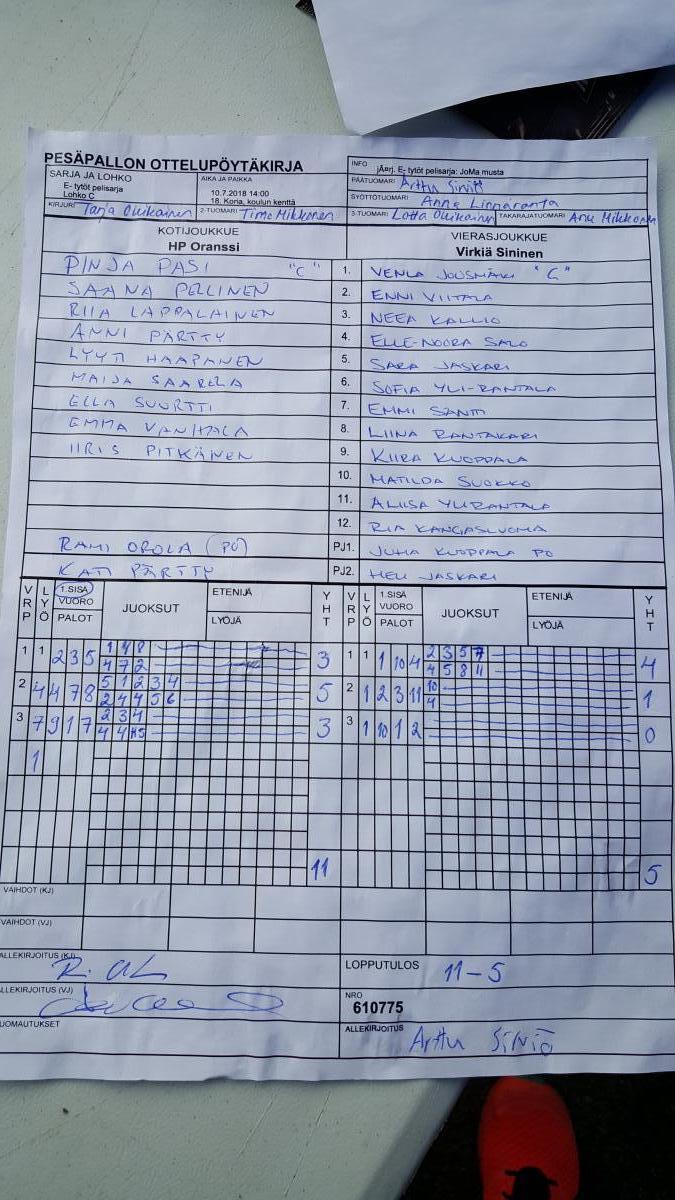 PESÄPALLON OTTELUPÖYTÄKIRJA
SARJA JA LOHKO
E- tytöt pelisarja
Lohko C
AIKA JA PAIKKA
10.7.2018 14:00
18. Koria, koulun kenttä
INFO
jÄärj. E- tytöt pelisarja: JoMa musta
PÄÄTUOMARI Arttu Siniö
SYÖTTÖTUOMARI Anne Linnaranta
KIRJURI Tarja Ouikainen
2-TUOMARI Timo Mikkonen
3-TUOMARI Lotta Ouikainen
TAKARAJATUOMARI Anu Mikkonen
KOTIJOUKKUE
HP Oranssi
VIERASJOUKKUE
Virkiä Sininen
PINJA PASI "C"
1. VENLA JOUSMÄKI "C"
SAANA PELLINEN
2. ENNI VIITALA
RIIA LAPPALAINEN
3. NEEA KALLIO
ANNI PÄRTTY
4. ELLE-NOORA SALO
LYYTI HAAPANEN
5. SARA JASKARI
MAIJA SAARELA
6. SOFIA YLI-RANTALA
ELLA SUURTTI
7. EMMI SANTI
EMMA VANHALA
8. LIINA RANTAKARI
IIRIS PITKÄNEN
9. KIIRA KUOPPALA
10. MATILDA SUOKKO
11. ALIISA YLIRANTALA
12. RIA KANGASLUOMA
RAMI OROLA (PO)
PJ1. JUHA KUOPPALA PO
KATI PÄRTTY
PJ2. HELI JASKARI
VRP LYÖ 1.SISÄ VUORO PALOT JUOKSUT ETENIJÄ LYÖJÄ YHT
VRP LYÖ 1.SISÄ VUORO PALOT JUOKSUT ETENIJÄ LYÖJÄ YHT
1 1 2 3 5 1 4 8 3
4 7 2
1 1 1 10 4 2 3 5 7 4
4 5 8 11
2 4 4 7 8 5 1 2 3 4 5
2 4 4 5 6
2 1 2 3 11 10 1
4
3 7 9 1 7 2 3 4 3
4 4
3 1 10 1 2 0
1
11
5
VAIHDOT (KJ)
VAIHDOT (VJ)
ALLEKIRJOITUS (KJ)
LOPPUTULOS 11-5
ALLEKIRJOITUS (VJ)
NRO
610775
HUOMAUTUKSET
ALLEKIRJOITUS Arttu Siniö